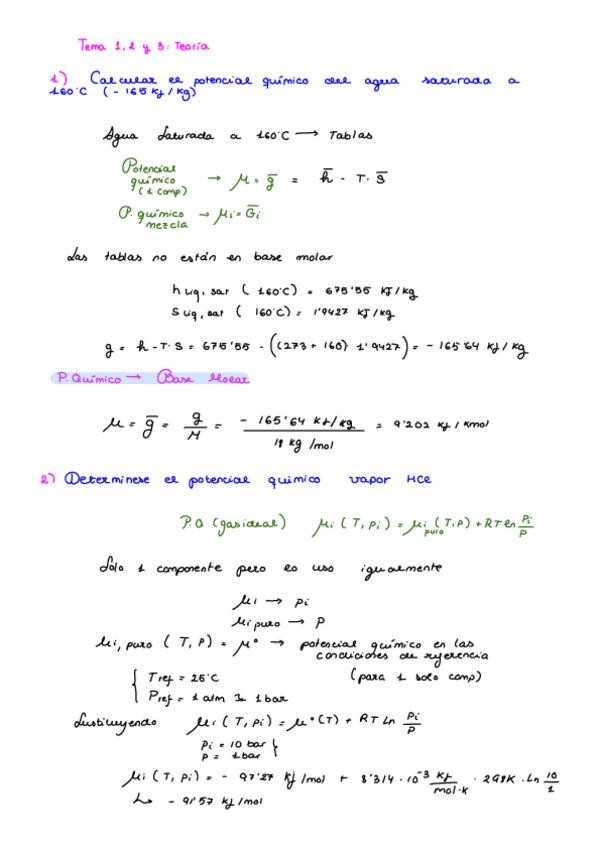 Tema 1, 2 y 3: Teoría
1) Calcular el potencial químico del agua saturada a
160°C (-165 KJ/Kg)
Agua saturada a 160°C → Tablas
Potencial
químico
(1 comp) → μ = g̅ = h̅ - T · s̅
P. químico
mezcla → μi = G̅i
Las tablas no están en base molar
h liq, sat (160°C) = 675'55 KJ/Kg
s liq, sat (160°C) = 1'9427 KJ/Kg
g = h - T·S = 675'55 - ((273 + 160) 1'9427) = -165'64 KJ/Kg
P. Químico → Base Molar
μ = g̅ = g/M = - 165'64 KJ/Kg / 18 Kg/mol = 9'202 KJ/Kmol
2) Determinese el potencial químico vapor HCl
P.Q (gas ideal) μi (T, Pi) = μi puro (T, P) + RT ln Pi/P
Solo 1 componente pero lo uso igualmente
μi → Pi
μi puro → P
μi, puro (T, P) = μ° → potencial químico en las
condiciones de referencia
(para 1 solo comp)
Tref = 25°C
Pref = 1 atm ≈ 1 bar
Sustituyendo μi (T, Pi) = μ° (T) + RT Ln Pi/P
Pi = 10 bar
P = 1 bar
μi (T, Pi) = - 97'27 KJ/mol + 8'314 · 10⁻³ KJ/mol·K · 298K · Ln 10/1
↳ - 91'57 KJ/mol